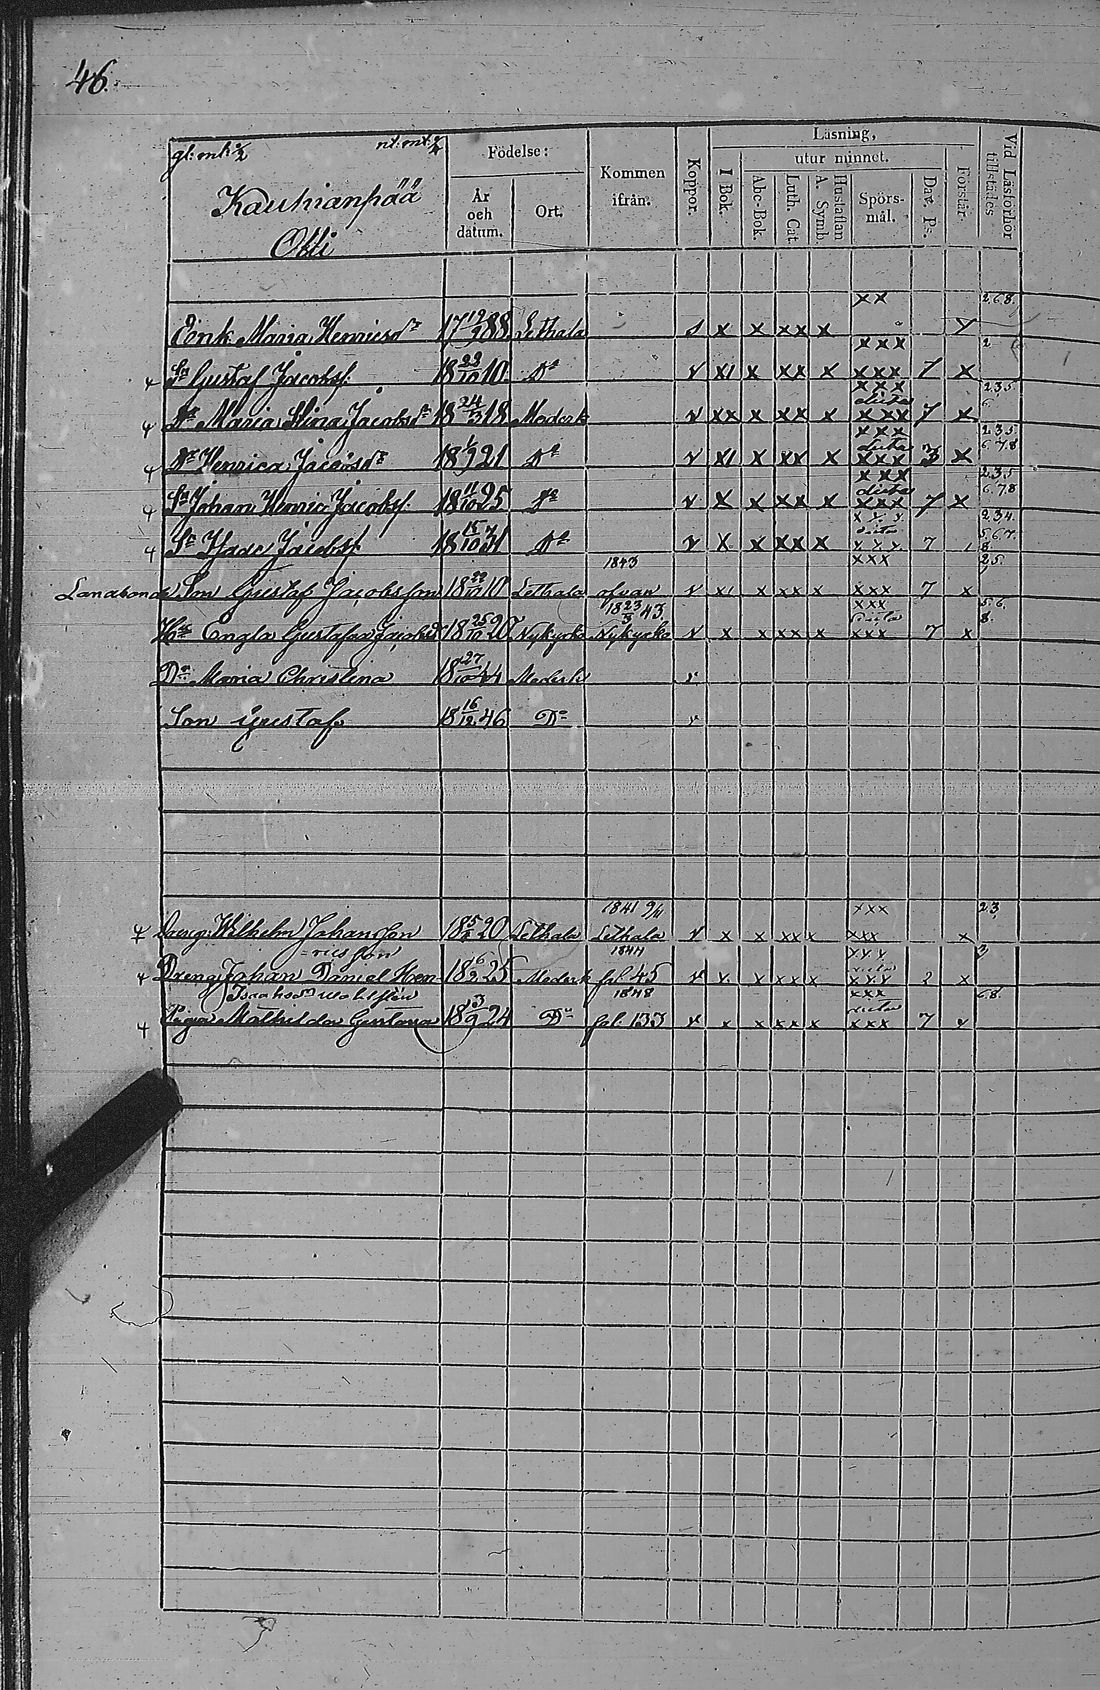 46.
gl: mt: nt: mt:
Kauhianpää
Otti
Födelse:
År och datum.
Ort.
Kommen ifrån.
Koppor.
Läsning,
utur minnet.
I Bok.
Abc-Bok.
Luth. Cat.
Hustaflan A. Symb.
Spörsmål.
Dav. Ps.
Förstår.
Vid Läsförhör tillstädes
x x 2.6.8.
Enk. Maria Henricsdr 17 12/2 88 Lethala x x xx x
x x x 2
Sn Gustaf Jacobss. 18 23/10 10. Do v x1 x xx x xxx 7 x
x x x 2.3.5.
dito 6.
Dr Maria Stina Jacobsdr 18 24/3 18 Moderk v xx x xx x xxx 7 x
x x x 2.3.5.
dito 6.7.8
Dr Henrica Jacobsdr 18 1/9 21 Do v x1 x xx x xxx 3 x
x x x 2.3.5
dito 6.7.8
Sn Johan Henric Jacobss. 18 11/10 25 Do v x x xx x xxx 7 x
x x x 2.3.4.
dito 5.6.7.
Sn Isaac Jacobss. 18 15/10 31 Do v x x xx x x x x 7 8
1843 xxx 2.5.
Landbonde Son Gustaf Jacobsson 18 23/10 10 Lethala ofvan v x1 x xx x xxx 7 x
18 23/3 43. xxx 5.6.
dito 8.
Hu Engla Gustafva Jacobsdr 18 25/10 20 Nykyrko Nykyrko v x x xx x xxx 7 x
Dr Maria Christina 18 27/10 44 Moderk v
Son Gustaf 18 16/12 46 Do v
1841 xxx 2.3.
Dreng Wilhelm Johansson 18 5/4 20 Lethala Lethala v x x xx x xxx x
ricsson 1844 x x x 3
Dreng Johan Daniel Hen= 18 6/2 25 Moderk fol. 45 v x x xx x xxx 2 x
1848 xxx 6.8.
dito
Piga Mathilda Gustava 18 3/9 24 Do fol. 133 v x x xx x xxx 7 v